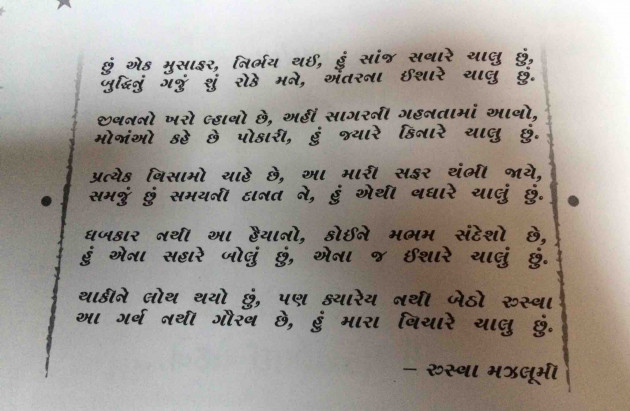 છું એક મુસાફર, નિર્ભય થઈ, હું સાંજ સવારે ચાલુ છું,
બુદ્ધિનું ગજું શું રોકે મને, અંતરના ઈશારે ચાલુ છું.
જીવનનો ખરો લ્હાવો છે, અહીં સાગરની ગહનતામાં આવો,
મોજાંઓ કહે છે પોકારી, હું જ્યારે કિનારે ચાલુ છું.
પ્રત્યેક વિસામો ચાહે છે, આ મારી સફર થંભી જાયે,
સમજું છું સમયની દાનત ને, હું એથી વધારે ચાલું છું.
ધબકાર નથી આ હૈયાનો, કોઈને મભમ સંદેશો છે,
હું એના સહારે બોલું છું, એના જ ઈશારે ચાલું છું.
થાકીને લોથ થયો છું, પણ ક્યારેય નથી બેઠો રુસ્વા
આ ગર્વ નથી ગૌરવ છે, હું મારા વિચારે ચાલુ છું.
– રુસ્વા મઝલૂમી